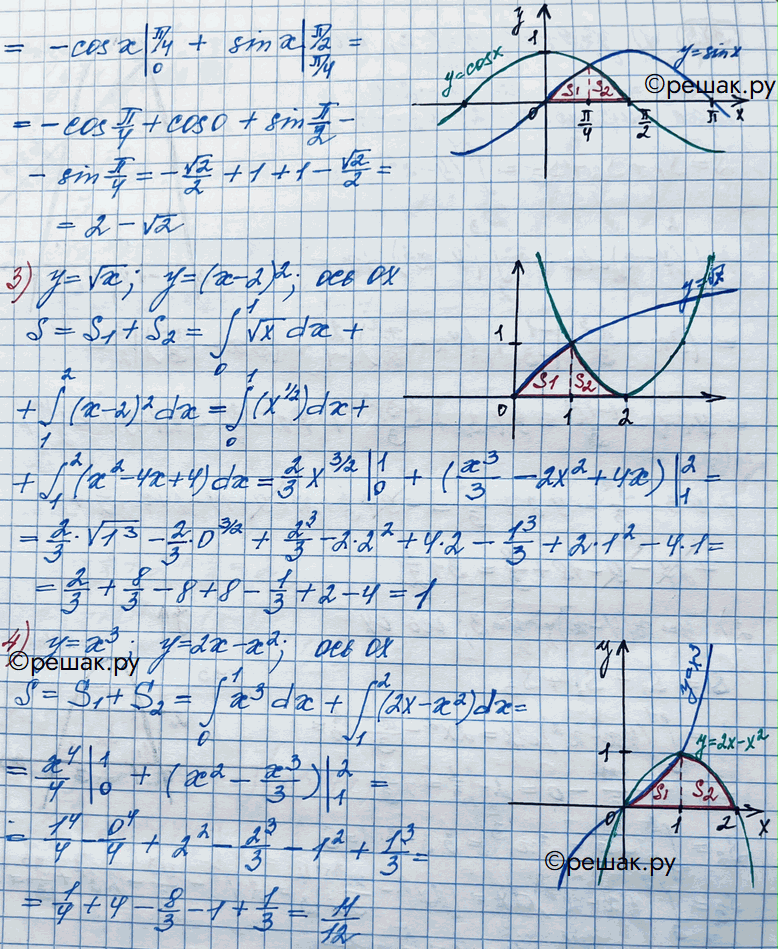 = -cos x |₀^π/4 + sin x |_π/4^π/2 =
= -cos π/4 + cos 0 + sin π/2 -
- sin π/4 = -√2/2 + 1 + 1 - √2/2 =
= 2 - √2
y
1
y=cosx
y=sinx
©решак.ру
S₁ S₂
0 π/4 π/2 π x
3) y=√x; y=(x-2)²; ось ОХ
S = S₁ + S₂ = ∫₀¹ √x dx +
+ ∫₁² (x-2)² dx = ∫₀¹ (x^1/2) dx +
+ ∫₁² (x²-4x+4) dx = 2/3 x^3/2 |₀¹ + (x³/3 - 2x² + 4x) |₁² =
= 2/3 · √1³ - 2/3 · 0^3/2 + 2³/3 - 2·2² + 4·2 - 1³/3 + 2·1² - 4·1 =
= 2/3 + 8/3 - 8 + 8 - 1/3 + 2 - 4 = 1
y=√x
1
S1 S2
0 1 2
4) y=x³; y=2x-x²; ось ОХ
©решак.ру
S = S₁ + S₂ = ∫₀¹ x³ dx + ∫₁² (2x-x²) dx =
= x⁴/4 |₀¹ + (x² - x³/3) |₁² =
= 1⁴/4 - 0⁴/4 + 2² - 2³/3 - 1² + 1³/3 =
= 1/4 + 4 - 8/3 - 1 + 1/3 = 11/12
y
y=x³
1
y=2x-x²
S₁ S₂
0 1 2 x
©решак.ру